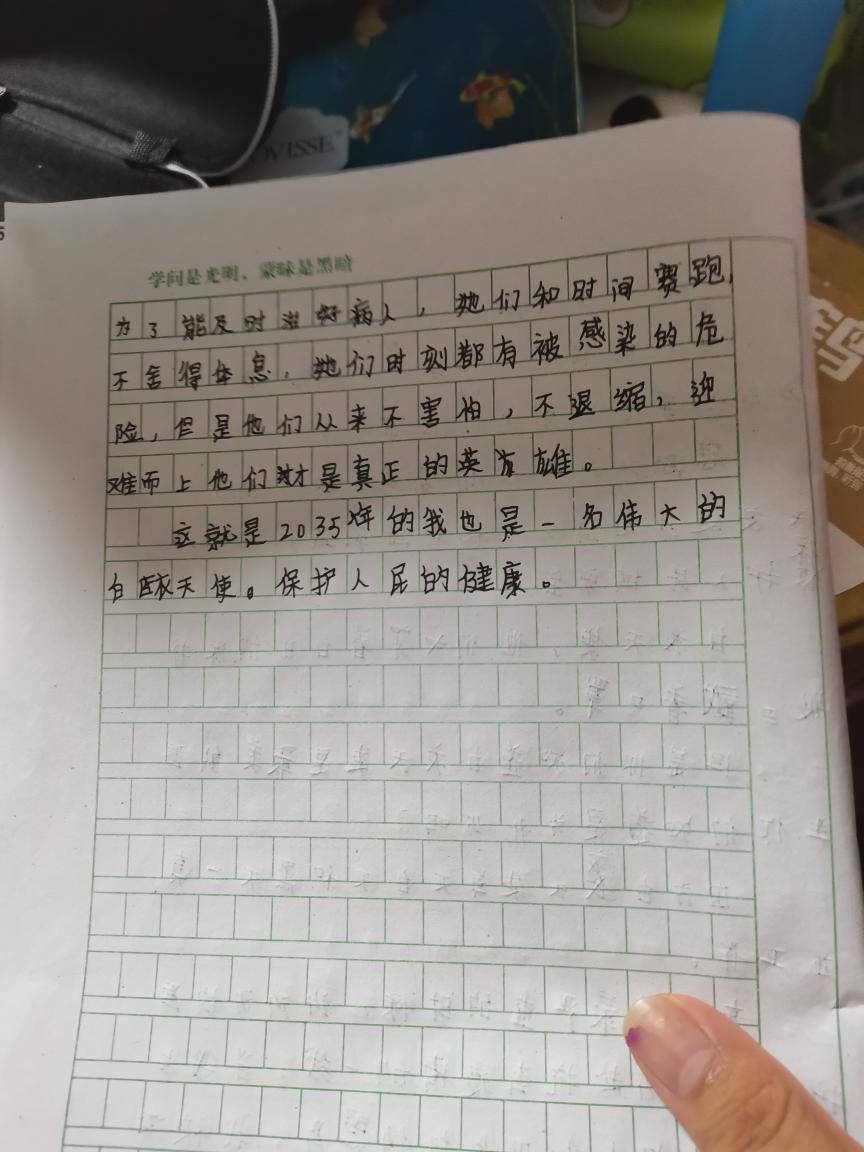 OVISSE
学问是光明、蒙昧是黑暗
为了能及时治好病人，她们和时间赛跑，
不舍得休息，她们时刻都有被感染的危
险，但是他们从来不害怕，不退缩，迎
难而上他们才是真正的英雄。
这就是2035年的我也是一名伟大的
白天使。保护人民的健康。